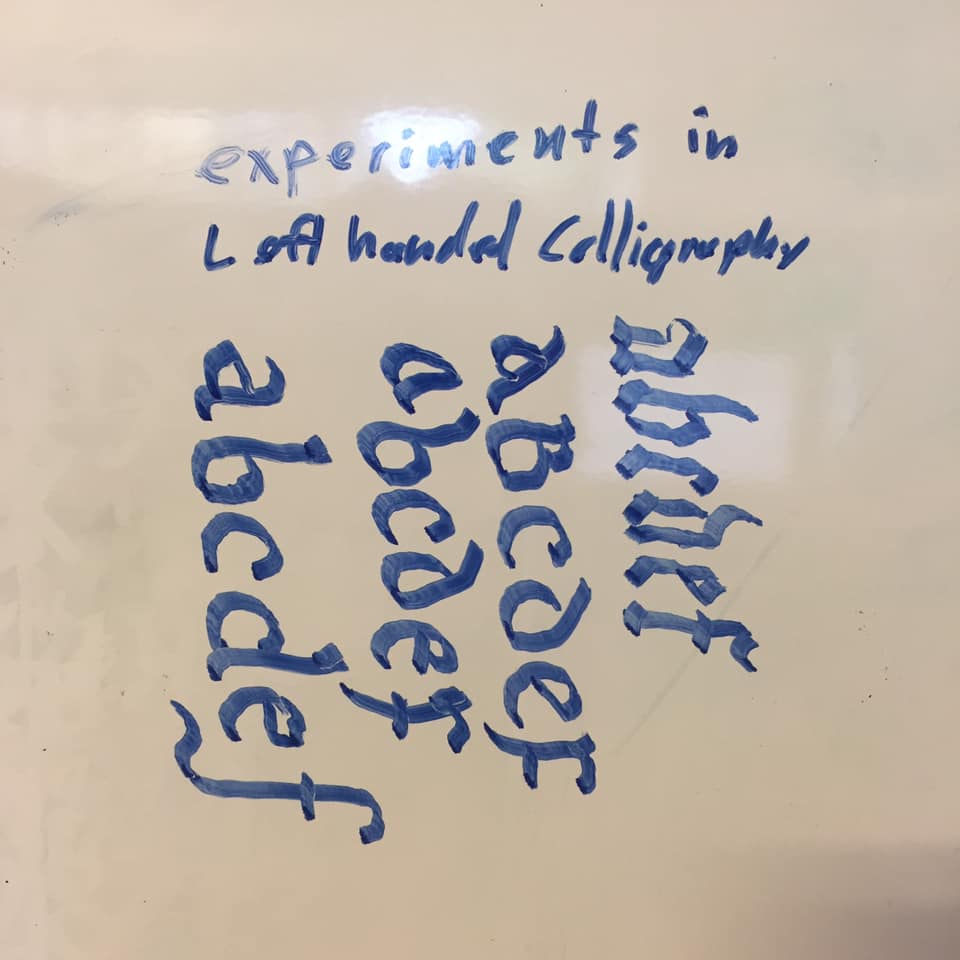 experiments in
Left handed Calligraphy
abcdef
aBcdef
abcdef
abcdef